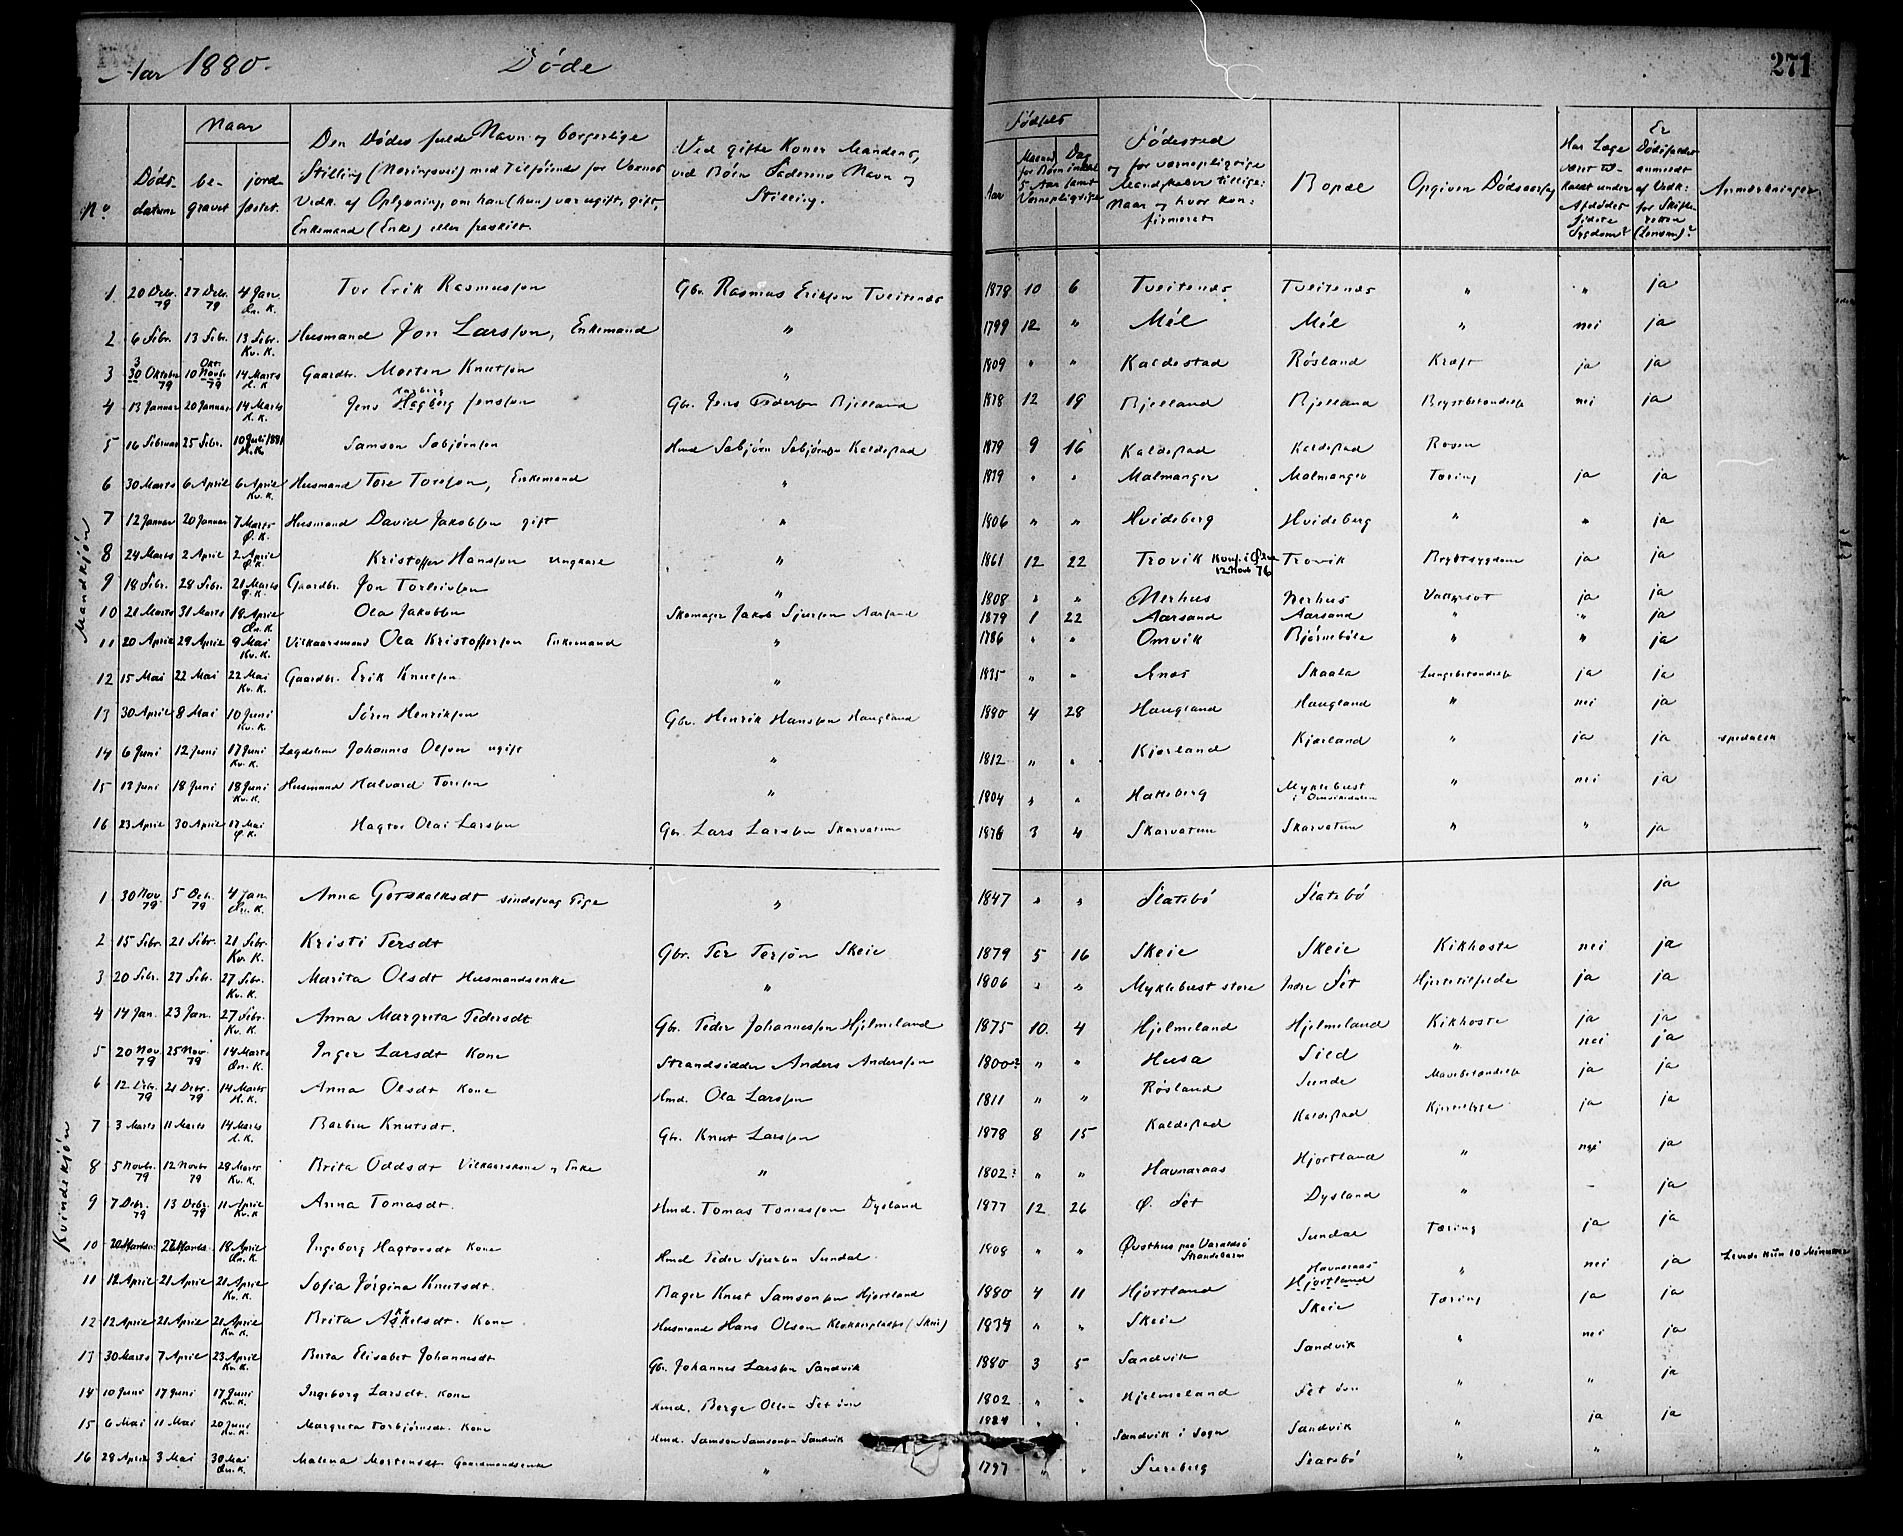 Aar 1880. Døde 271
No
Naar
Døds-datum
be-gravet
jord-fæstet.
Den Dødes fulde Navn og borgerlige
Stilling (Næringsvei) med Tilføiende for Voxnes
Vedk. af Oplysning, om han (hun) var ugift, gift,
Enkemand (Enke) eller fraskilt.
Ved gifte Koner Mandens,
ved Børn Faderens Navn og
Stilling.
Fødsels
Aar
Maaned for Børn indtil 5 Aar samt Værnepligtige
Dag
Fødested
og for værnepligtige
Mandskaber tillige:
Naar og hvor kon-
firmeret
Bopæl
Opgiven Dødsaarsag
Har Læge været til-kaldt under Afdødes sidste Sygdom?
Er Dødsfaldet anmeldt af Vedk: for Skifte-retten (Lensm)?
Anmerkninger
Mandkjøn
1. 20 Decbr. 79 27 Decbr. 79 4 Jan. Ln. K. Tor Erik Rasmussøn Gbr. Rasmus Eriksøn Tveitenæs 1878 10 6 Tveitenæs Tveitenæs " " ja
2 6 Febr. 13 Febr. 13 Febr. Kv. K. Husmand Jon Larssøn, Enkemand " 1799 12 " Mél Mél " nei ja
3 30 Oktober 79 10 Novbr 79 14 Marts Gaardbr. Morten Knutsøn " 1809 " " Kaldestad Røsland Kræft ja ja
4 13 Januar 20 Januar 14 Marts Jens Hagbarg Jenssøn Gbr. Jens Pedersøn Bjelland 1878 12 19 Bjelland Bjelland Brystbetændelse nei ja
5 16 Februar 25 Febr. 10 Juli 1881 Samson Sæbjørnsøn Hmd Sæbjørn Sæbjørnsøn Kaldestad 1879 9 16 Kaldestad Kaldestad Rosen
6 30 Marts 6 April 6 April Kv. K. Husmand Tore Toresøn, Enkemand " Malmanger Malmanger Tæring ja ja
7 12 Januar 20 Januar 7 Marts Ø. K. Husmand David Jakobsøn gift " 1806 " " Hvideberg Hvideberg " " ja
8 24 Marts 2 April 2 April Ø.K. Kristoffer Hanssøn ungkarl " 1861 12 22 Trovik Konf. i Ølve 12 Novb 76 Trovik Brystsygdom ja ja
9 18 Febr. 28 Febr. 21 Marts Ø.K. Gaardbr. Jon Torleivsøn " 1808 " " Nerhus Nerhus Vattersot ja ja
10 21 Marts 31 Marts 18 April Ln. K. Ola Jakobsøn Skomager Jakob Sjursøn Aarsand 1879 1 22 Aarsand Aarsand " " ja
11 20 April 29 April 9 Mai Kv. K. Vilkaarsmand Ola Kristoffersøn Enkemand " 1786 " " Omvik Bjørnebøle " " ja
12 15 Mai 22 Mai 22 Mai Kv. K. Gaardbr. Erik Knutsøn " 1835 " " Ænes Skaala Lungebetændelse ja ja
13 30 April 8 Mai 10 Juni Kv. K. Søren Henriksøn Gbr. Henrik Hanssøn Haugland 1880 4 28 Haugland Haugland " nei ja
14 6 Juni 12 Juni 17 Juni Kv. K. Lægdslem Johannes Olsøn ugift " 1812 " " Kjærland Kjærland " ja ja spedalsk
15 13 Juni 18 Juni 18 Juni Kv. K. Husmand Halvard Toresøn " 1804 " " Hatteberg Myklebust i Omvikdalen " nei ja
16 23 April 30 April 17 Mai Ø K. Hagtor Olai Larssøn Gbr. Lars Larssøn Skarvatun 1876 3 4 Skarvatun Skarvatun " " ja
Kvindekjøn
1 30 Nov. 79 5 Dec. 79 4 Jan. Ln. K. Anna Gotskalksdt sindssvag Pige " 1847 " " Flatebø Flatebø ja
2 15 Febr. 21 Febr. 21 Febr. Kv. K. Kristi Persdt Gbr. Per Persøn Skeie 1879 5 16 Skeie Skeie Kikhoste nei ja
3 20 Febr. 27 Febr. 27 Febr. Kv. K. Marita Olsdt Husmandsenke " 1806 " " Myklebust store Indre Set Hjertetilfælde ja ja
4 14 Jan. 23 Jan. 27 Febr. Kv. K. Anna Margreta Pedersdt Gbr. Peder Johannessøn Hjelmeland 1875 10 4 Hjelmeland Hjelmeland Kikhoste ja ja
5 20 Nov. 79 25 Nov. 79 14 Marts Ln. K. Inger Larsdt Kone Strandsidder Anders Anderssøn 1800? " " Husa " nei ja
6 12 Decbr. 79 21 Decbr. 79 14 Marts H. K. Anna Olsdt Kone Hmd. Ola Larssøn 1811 " " Røsland Sunde Mavebetændelse ja ja
7 3 Marts 11 Marts 14 Marts Barbru Knutsdt. Gbr. Knut Larssøn 1878 8 15 Kaldestad Kaldestad Kjertelsyge ja ja
8 5 Novbr. 79 12 Novbr 79 28 Marts Kv. K. Brita Oddsdt Vilkaarskone og Enke " 1802? " " Havnaraas Hjortland " nei ja
9 7 Decbr. 79 13 Decbr. 79 11 April Kv. K Anna Tomasdt. Hmd. Tomas Tomassøn Dysland 1877 12 26 Ø. Set Dysland " - ja
10 20 Marts 26 Marts 18 April Ln. K. Ingeborg Hagtorsdt Kone Hmd Peder Sjursøn Sundal. 1808 " " Øvsthus paa Varaldsø Strandebarm Sundal Tæring ja ja
11 12 April 21 April 21 April Kv. K. Sofia Jørgina Knutsdt. Bager Knut Samsonsøn Hjortland 1880 4 11 Hjortland Havnaraas Hjortland " nei ja Levede kun 10 Minutter
12 12 April 21 April 21 April Kv. K. Brita Askelsdt. Kone Husmand Hans Olson Klokkerplads (Skeie) 1834 " " Skeie Skeie Tæring ja ja
13 30 Marts 7 April 23 April Kv. K. Berta Elisabet Johannesdt Gbr. Johannes Larssøn Sandvik 1880 3 5 Sandvik Sandvik " nei ja
14 10 Juni 17 Juni 17 Juni Kv. K. Ingeborg Larsdt. Kone Hmd. Berge Olsøn Set 1802 " " Hjelmeland Set " " ja
15 6 Mai 11 Mai 20 Juni Kv. K. Margreta Torbjørnsdt. Kone Hmd. Samson Samsonsøn Sandvik 1824 " " Sandvik i Sogn Sandvik " ja ja
16 28 April 3 Mai 30 Mai Ln. K. Malena Mortensdt. Gaardmandsenke " 1797 " " Fureberg Flatebø " "